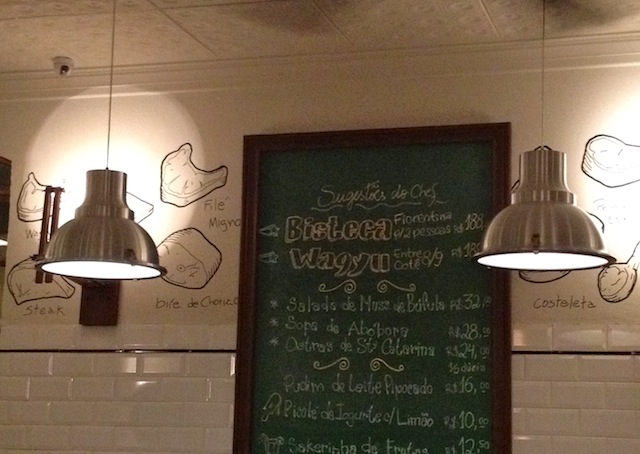 Sugestões do Chef
Bisteca Fiorentina
p/2 pessoas R$ 188,
Wagyu Entrecote
* Salada de Muss de Búfula R$ 32,00
* Sopa de Abóbora R$ 28,00
* Ostras de Sta Catarina R$ 24,00
½ dúzia
Pudim de Leite Pipocado R$ 16,00
Picolé de Iogurte c/ Limão R$ 10,00
Sakerinha de Frutas R$ 12,50
Filé
Mignon
steak
bife de Chorizo
costaleta